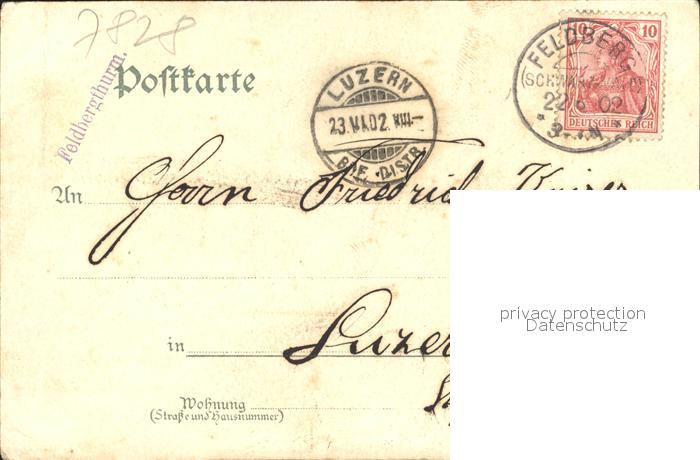 7828
Feldbergthurm.
Postkarte
LUZERN
23.VI.02.VIII—
BRF. DISTR
10 10
FELDBERG
(SCHWARZW
22 6 02
DEUTSCHES REICH
An Herrn Friedrich Kaiser
privacy protection
Datenschutz
in Luzer
Wohnung
(Straße und Hausnummer)